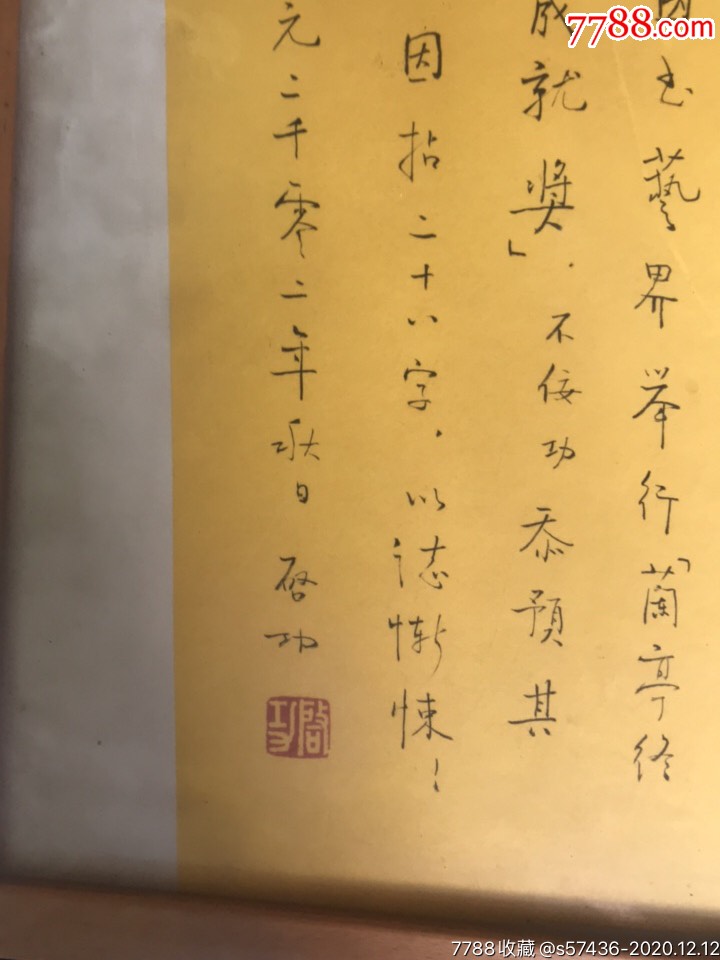 7788.com
国书艺界举行「兰亭终
成就奖」.不佞功忝预其
因拈二十八字.以志惭悚!
元二千零二年秋日 启功
启功
7788收藏 @s57436-2020.12.12